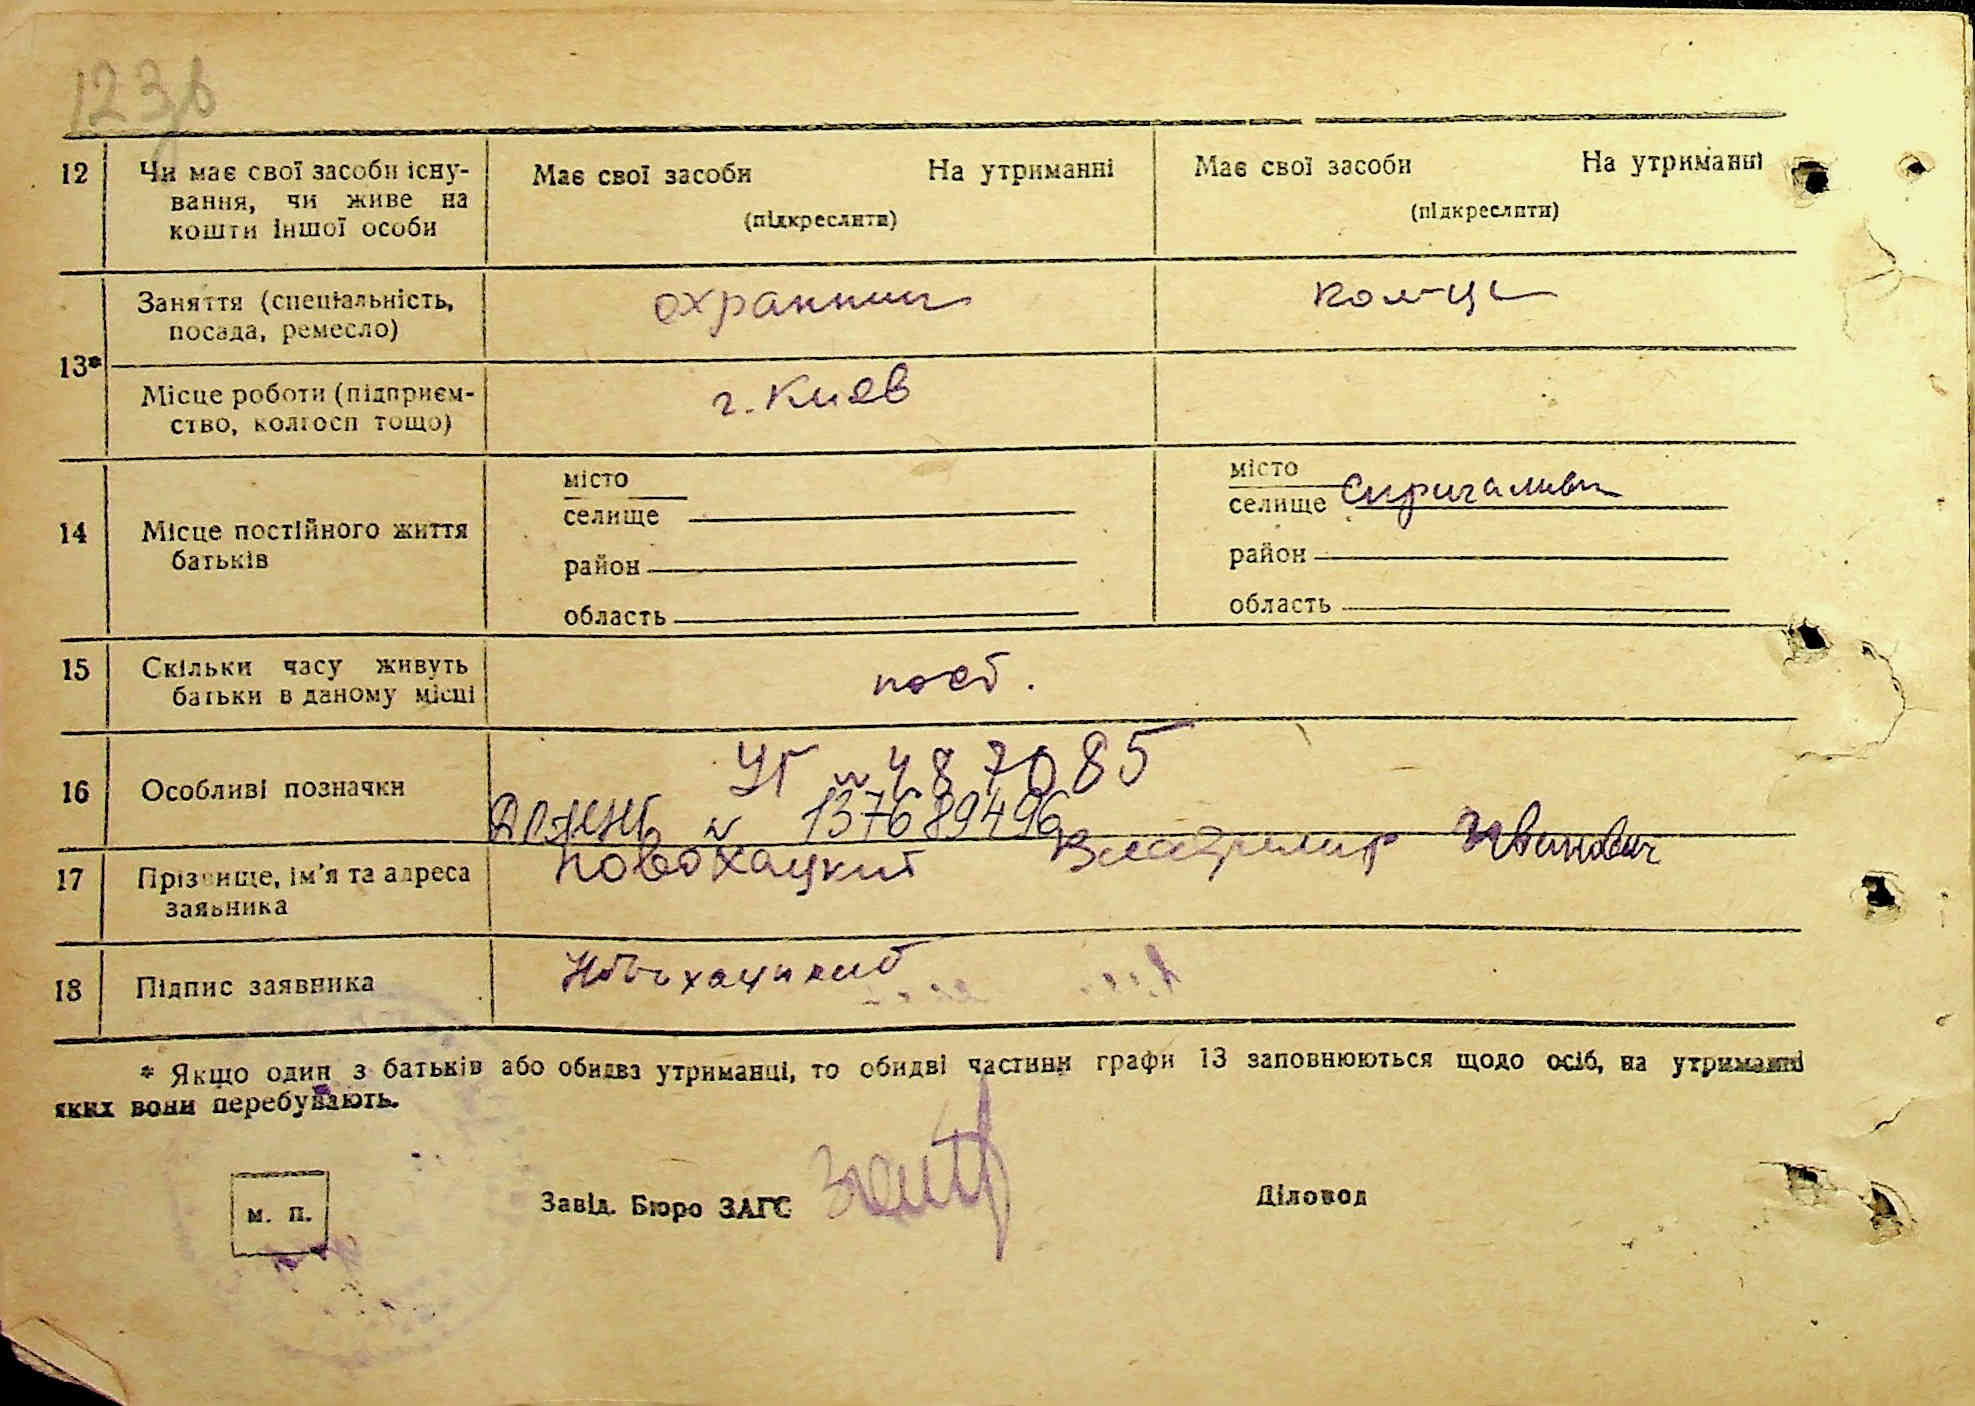 123в
12 Чи має свої засоби існу-
вання, чи живе на
кошти іншої особи
Має свої засоби На утриманні
(підкреслити)
Має свої засоби На утриманні
(підкреслити)
13*
Заняття (спеціальність,
посада, ремесло)
охранник
кол-ца
Місце роботи (підприєм-
ство, колгосп тощо)
г. Киев
14 Місце постійного життя
батьків
місто
селище
район
область
місто
селище
район
область
15 Скільки часу живуть
батьки в даному місці
пост.
16 Особливі позначки
УГ № 487085
№ 137689496
17 Прізвище, ім'я та адреса
заявника
Новохацкий Владимир Иванович
18 Підпис заявника
Новохацкий
* Якщо один з батьків або обидва утриманці, то обидві частини графи 13 заповнюються щодо осіб, на утриманні
яких вони перебувають.
м. п.
Завід. Бюро ЗАГС
Діловод